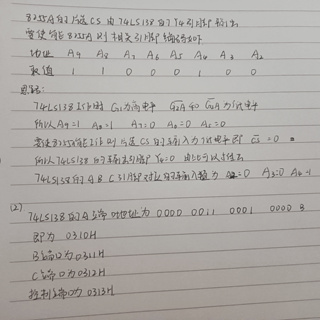 8255A的片选CS由74LS138的Y4引脚输出
要使能8255A则相关引脚编码如下
地址 A9 A8 A7 A6 A5 A4 A3 A2
取值 1 1 0 0 0 1 0 0
思路:
74LS138工作时 G1为高电平 G2A和G2B为低电平
所以A9=1 A8=1 A7=0 A6=0 A5=0
要使8255A能工作则片选CS的输入为低电平即 CS=0
所以74LS138的输出引脚Y4=0
74LS138的A B C引脚对应的输入为 A2=0 A3=0 A4=1
(2)
74LS138的A端口地址为 0000 0011 0001 0000 B
即为 0310H
B端口为0311H
C端口为0312H
控制端口为0313H